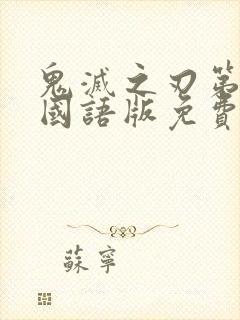 鬼滅之刃第
國語版免費
蘇寧